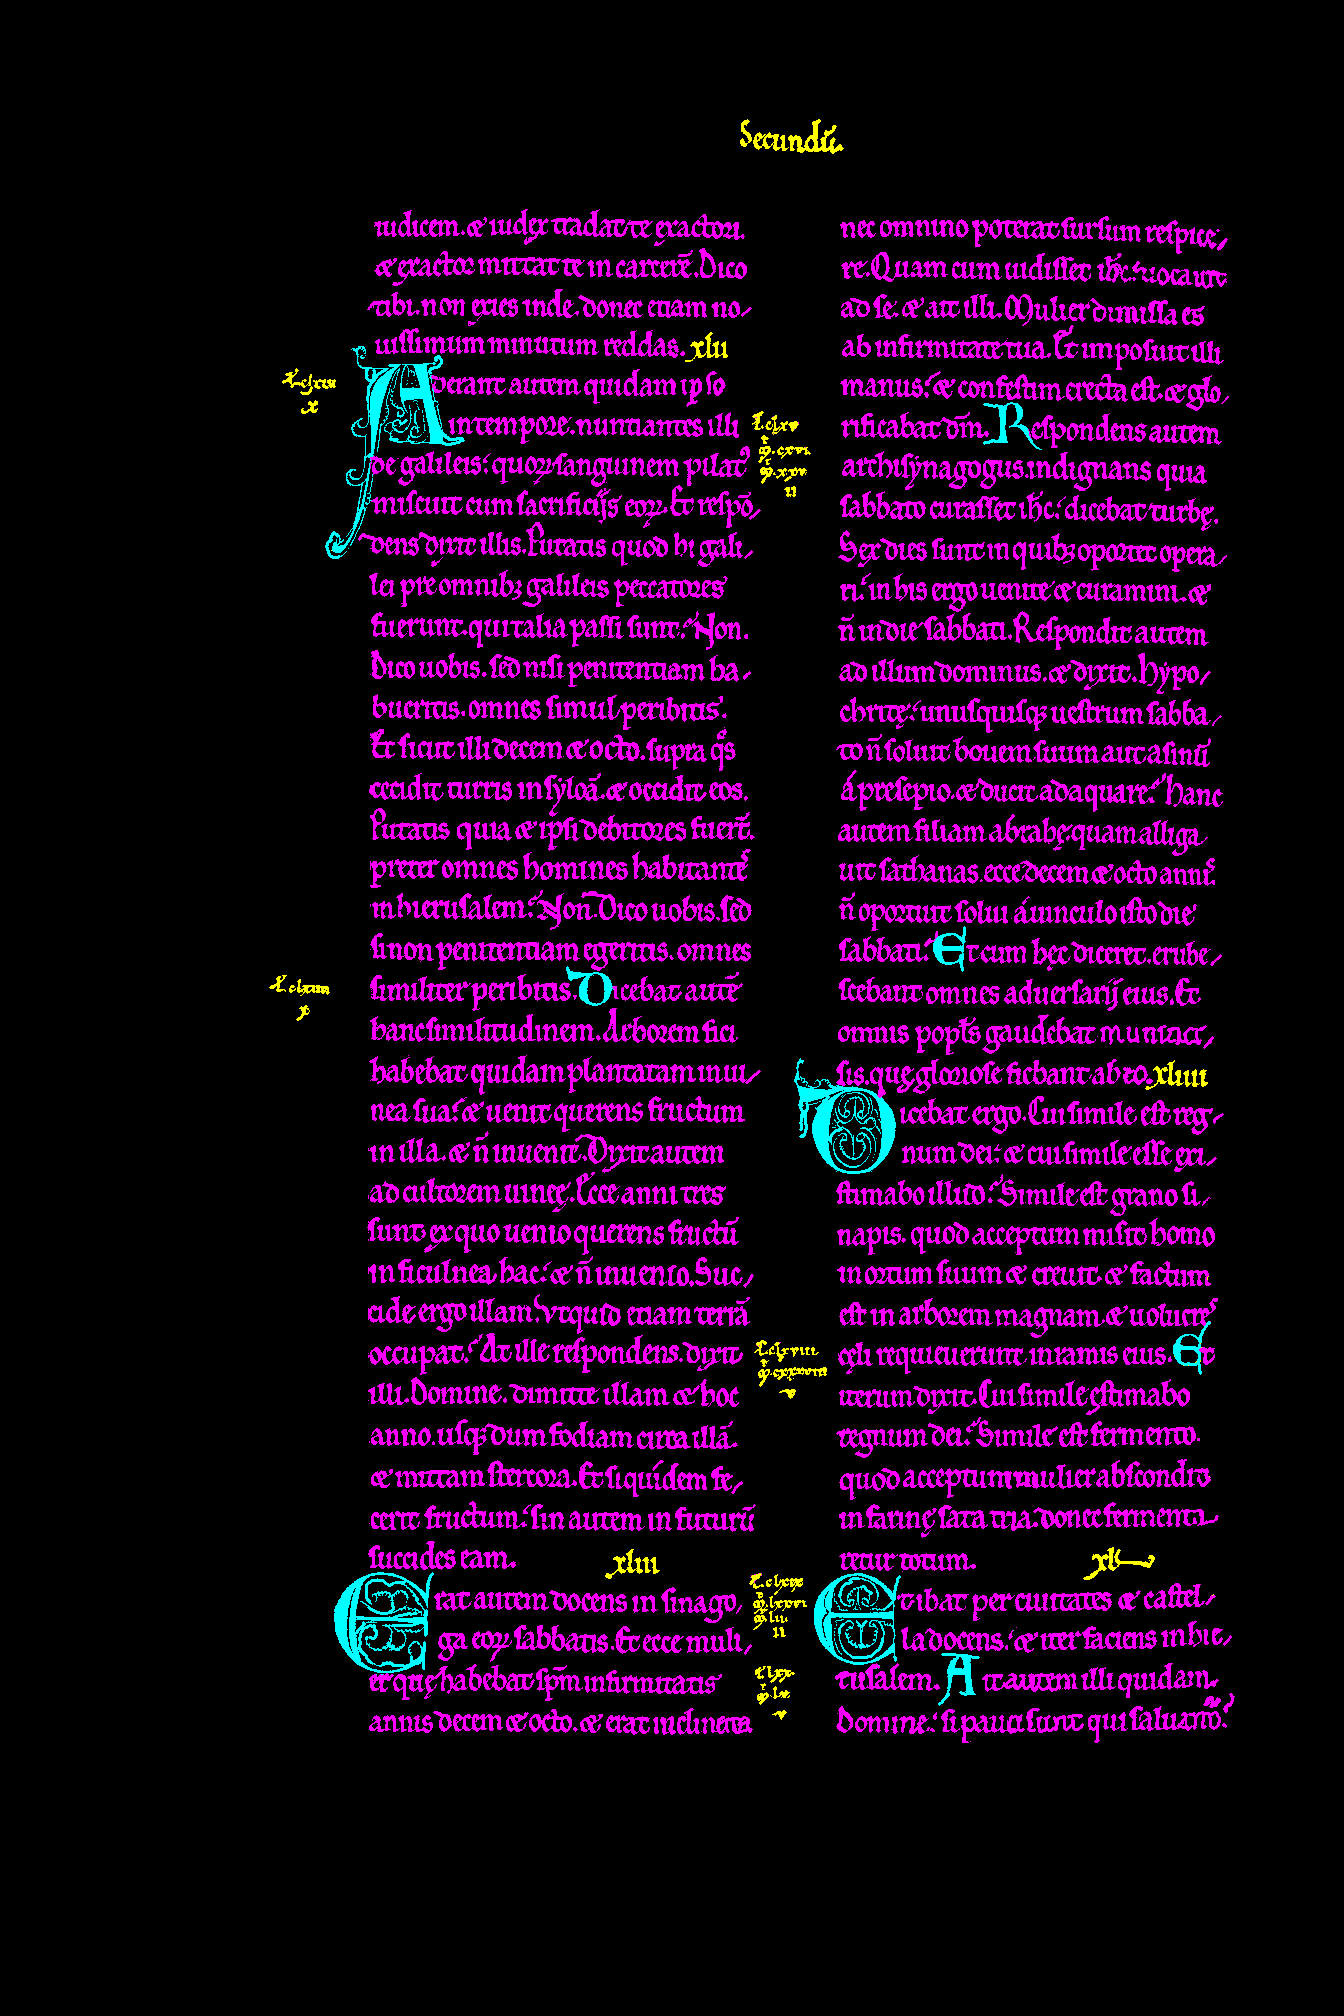 Secundũ
iudicem. & iudex tradat te exactori.
& exactor mittat te in carcerẽ. Dico
tibi. non exies inde. donec etiam no/
uissimum minutum reddas. xlii
Aderant autem quidam ipso
in tempore. nuntiantes illi
de galileis: quoꝝ sanguinem pilatꝰ
miscuit cum sacrificijs eoꝝ. Et respõ/
dens dixit illis. Putatis quod hi gali/
lei pre omnibꝫ galileis peccatores
fuerunt. qui talia passi sunt: Non.
Dico uobis. sed nisi penitentiam ha/
bueritis. omnes simul peribitis.
Et sicut illi decem & octo. supra q͛s
cecidit turris in syloã. & occidit eos.
Putatis quia & ipsi debitores fuerũt.
preter omnes homines habitantes
in hierusalem: Non. Dico uobis. sed
si non penitentiam egeritis. omnes
similiter peribitis. Dicebat autẽ
hanc similitudinem. Arborem fici
habebat quidam plantatam in ui/
nea sua: & uenit querens fructum
in illa. & ñ inuenit. Dixit autem
ad cultorem uineę. Ecce anni tres
sunt ex quo uenio querens fructũ
in ficulnea hac: & ñ inuenio. Suc/
cide ergo illam. Vtquid etiam terrã
occupat. At ille respondens. dixit
illi. Domine. dimitte illam & hoc
anno. usqꝫ dum fodiam circa illã.
& mittam stercora. Et siquidem fe/
cerit fructum: sin autem in futurũ
succides eam. xliii
Erat autem docens in sinago/
ga eoꝝ sabbatis. Et ecce muli/
er quę habebat sp̃m infirmitatis
annis decem & octo. & erat inclinata
nec omnino poterat sursum respice/
re. Quam cum uidisset ih̅c: uocauit
ad se. & ait illi. Mulier dimissa es
ab infirmitate tua. Et imposuit illi
manus: & confestim erecta est. & glo/
rificabat dm̅. Respondens autem
archisynagogus. indignans quia
sabbato curasset ih̅c: dicebat turbę.
Sex dies sunt in quibꝫ oportet opera/
ri: in his ergo uenite & curamini. &
ñ in die sabbati. Respondit autem
ad illum dominus. & dixit. Hypo/
chritę: unusquisqꝫ uestrum sabba/
to ñ soluit bouem suum aut asinũ
á presepio. & ducit adaquare: Hanc
autem filiam abrahę quam alliga
uit sathanas. ecce decem & octo annis.
ñ oportuit solui á uinculo isto die
sabbati: Et cum hęc diceret. erube/
scebant omnes aduersarij eius. Et
omnis popl̅s gaudebat in uniuer/
sis. quę gloriose fiebant ab eo. xliiii
Dicebat ergo. Cui simile est reg/
num dei: & cui simile esse exi/
stimabo illud: Simile est grano si/
napis. quod acceptum misit homo
in ortum suum & creuit. & factum
est in arborem magnam. & uolucres
cęli requieuerunt in ramis eius. Et
iterum dixit. Cui simile estimabo
regnum dei: Simile est fermento.
quod acceptum mulier abscondit
in farinę sata tria. donec fermenta
retur totum. xlv
Et ibat per ciuitates & castel/
la docens: & iter faciens in hie/
rusalem. Ait autem illi quidam.
Domine: si pauci sunt qui saluantur: